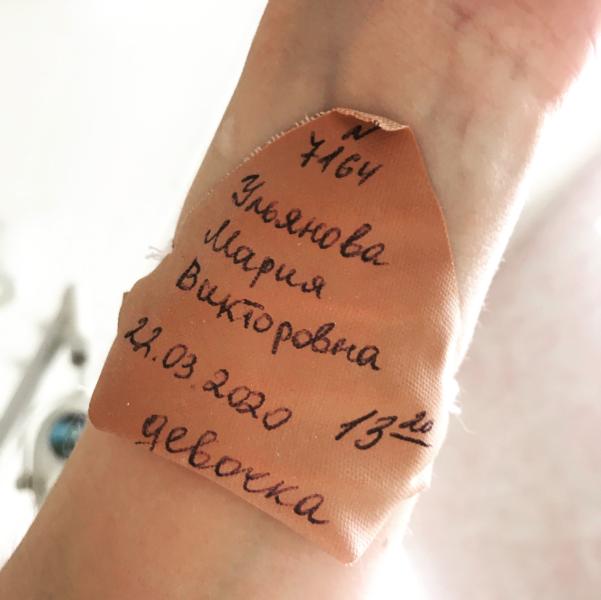 N
7164
Ульянова
Мария
Викторовна
22.03.2020 13 20
девочка